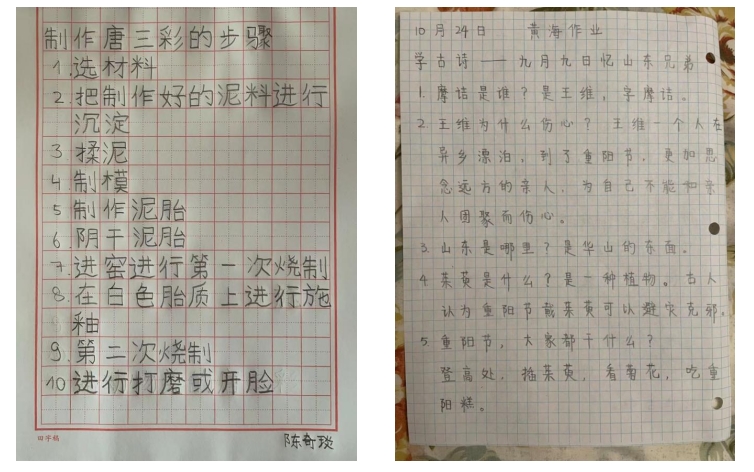 制作唐三彩的步骤
1.选材料
2.把制作好的泥料进行
沉淀
3.揉泥
4.制模
5.制作泥胎
6.阴干泥胎
7.进窑进行第一次烧制
8.在白色胎质上进行施
釉
9.第二次烧制
10.进行打磨或开脸
田字稿
陈奇琰
10月24日 黄海作业
学古诗——九月九日忆山东兄弟
1.摩诘是谁？是王维，字摩诘。
2.王维为什么伤心？王维一个人在
异乡漂泊，到了重阳节，更加思
念远方的亲人，为自己不能和亲
人团聚而伤心。
3.山东是哪里？是华山的东面。
4.茱萸是什么？是一种植物。古人
认为重阳节戴茱萸可以避灾克邪。
5.重阳节，大家都干什么？
登高处，插茱萸，看菊花，吃重
阳糕。